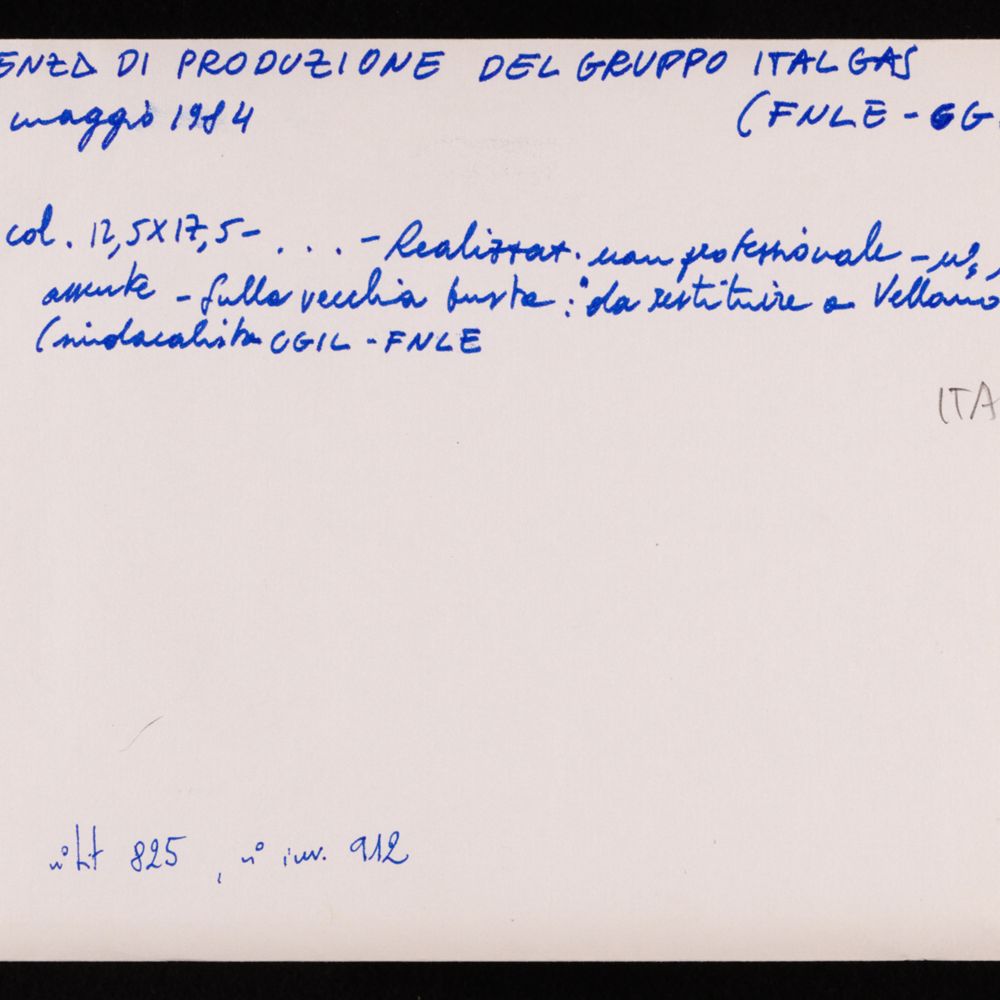 ENZA DI PRODUZIONE DEL GRUPPO ITALGAS
maggio 1984 (FNLE - CG
col. 12,5X17,5 - . . . - Realizzat. non professionale - n°,
assente - Sulla vecchia busta : "da restituire a Vellano
(sindacalista CGIL - FNLE
ITA
n° 825 , n° inv. 912